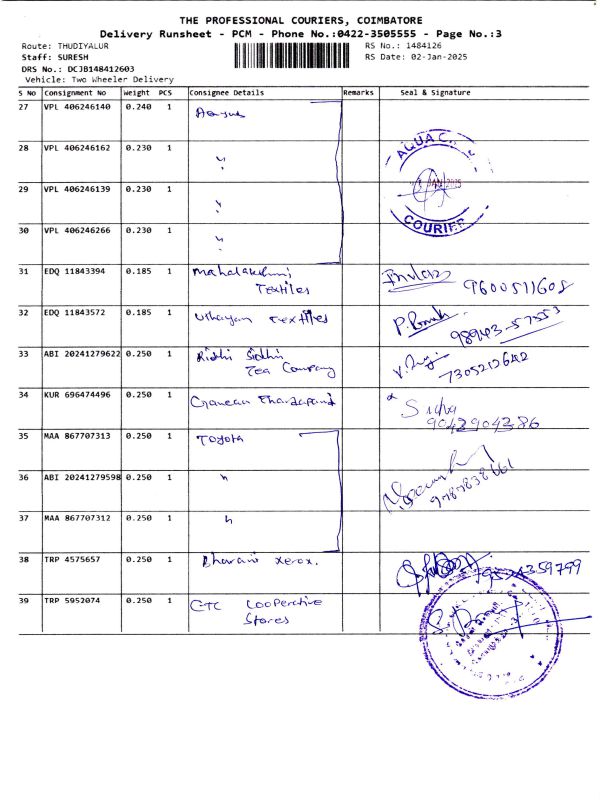 THE PROFESSIONAL COURIERS, COIMBATORE
Delivery Runsheet - PCM - Phone No.:0422-3505555 - Page No.:3
Route: THUDIYALUR RS No.: 1484126
Staff: SURESH RS Date: 02-Jan-2025
DRS No.: DCJB148412603
Vehicle: Two Wheeler Delivery
S No Consignment No Weight PCS Consignee Details Remarks Seal & Signature
27 VPL 406246140 0.240 1
28 VPL 406246162 0.230 1 "
AQUA
29 VPL 406246139 0.230 1 "
JAN 2025
30 VPL 406246266 0.230 1 "
COURIER
31 EDQ 11843394 0.185 1 Mahalakshmi
Textiles 9600511608
32 EDQ 11843572 0.185 1 Uthayan Textiles
98943-57553
33 ABI 20241279622 0.250 1 Ridhi Sidhi
Tea Company 7305212642
34 KUR 696474496 0.250 1
9042904386
35 MAA 867707313 0.250 1 Toyota
36 ABI 20241279598 0.250 1 "
37 MAA 867707312 0.250 1 "
38 TRP 4575657 0.250 1 Dharani xerox.
39 TRP 5952074 0.250 1 CTC Cooperative
Stores